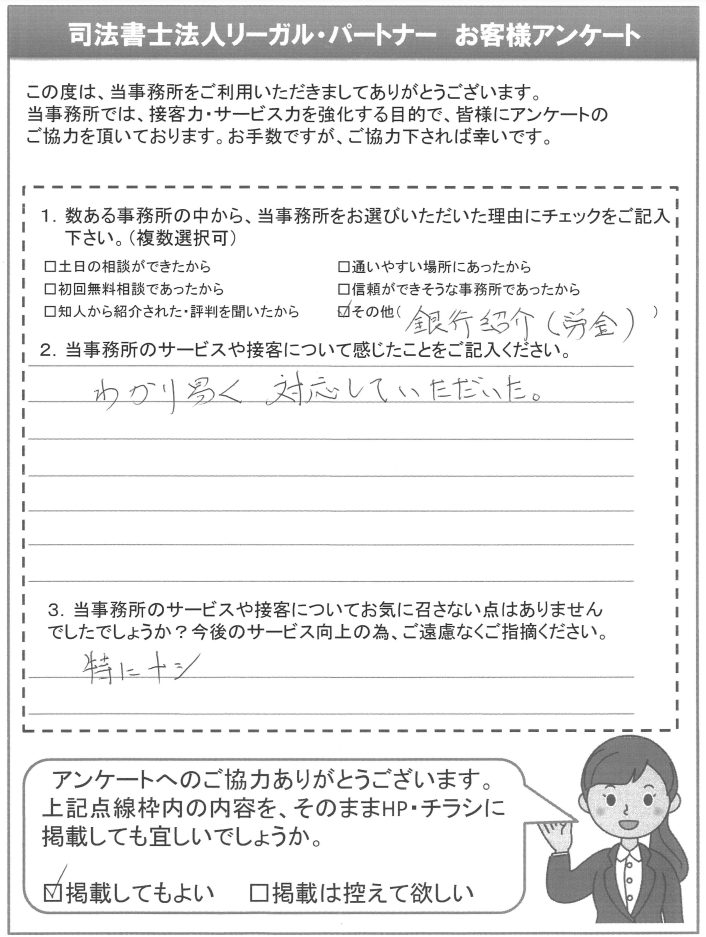 司法書士法人リーガル・パートナー お客様アンケート
この度は、当事務所をご利用いただきましてありがとうございます。
当事務所では、接客力・サービス力を強化する目的で、皆様にアンケートの
ご協力を頂いております。お手数ですが、ご協力下されば幸いです。
1．数ある事務所の中から、当事務所をお選びいただいた理由にチェックをご記入
下さい。（複数選択可）
□土日の相談ができたから □通いやすい場所にあったから
□初回無料相談であったから □信頼ができそうな事務所であったから
□知人から紹介された・評判を聞いたから ☑その他（銀行紹介（労金））
2．当事務所のサービスや接客について感じたことをご記入ください。
わかり易く 対応していただいた。
3．当事務所のサービスや接客についてお気に召さない点はありません
でしたでしょうか？今後のサービス向上の為、ご遠慮なくご指摘ください。
特にナシ
アンケートへのご協力ありがとうございます。
上記点線枠内の内容を、そのままHP・チラシに
掲載しても宜しいでしょうか。
☑掲載してもよい □掲載は控えて欲しい